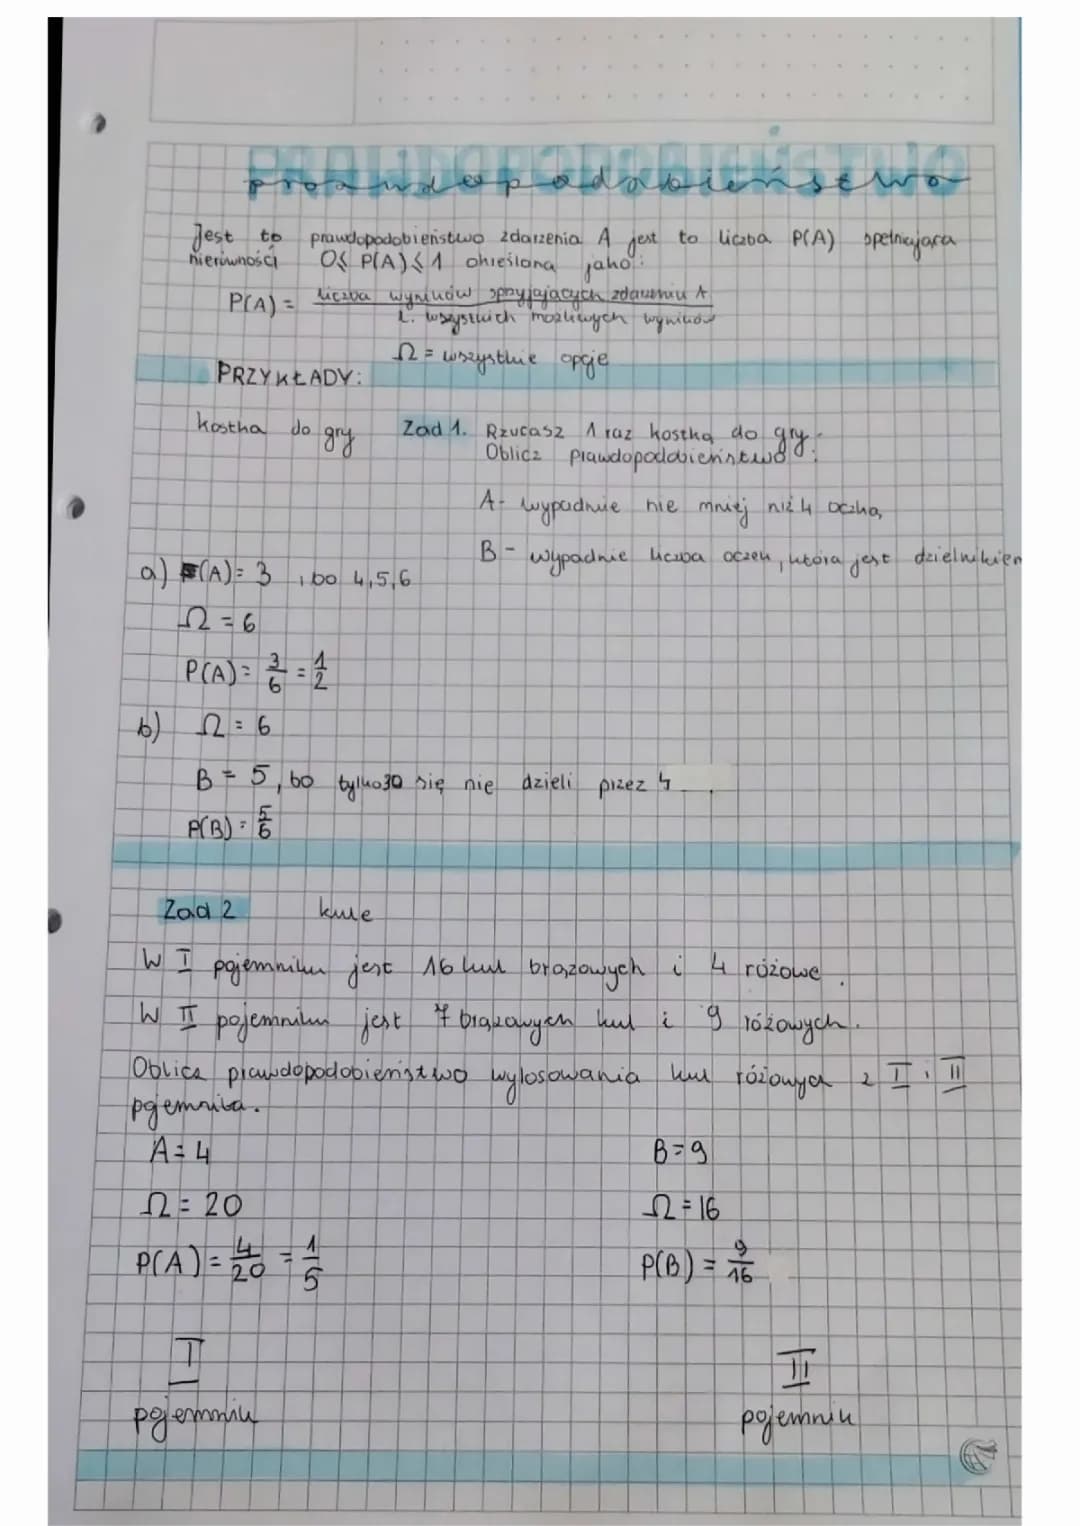 PRAWDOPODOBIEŃSTWO
prawdopodobieństwo
Jest to prawdopodobieństwo zdarzenia A jest to liczba P(A) spełniająca
nierówności 0≤ P(A)≤1 określona jako:
P(A) = liczba wyników sprzyjających zdarzeniu A
l. wszystkich możliwych wyników
Ω = wszystkie opcje
PRZYKŁADY:
kostka do gry Zad 1. Rzucasz 1 raz kostką do gry.
Oblicz prawdopodobieństwo:
A- wypadnie nie mniej niż 4 oczka,
B- wypadnie liczba oczek, która jest dzielnikiem
a) (A)= 3, bo 4,5,6
Ω = 6
P(A)= 3/6 = 1/2
b) Ω = 6
B = 5, bo tylko 30 się nie dzieli przez 4.
P(B) = 5/6
Zad 2 kule
W I pojemniku jest 16 kul brązowych i 4 różowe.
W II pojemniku jest 7 brązowych kul i 9 różowych.
Oblicz prawdopodobieństwo wylosowania kul różowych z I i II
pojemnika.
A=4 B=9
Ω = 20 Ω=16
P(A)= 4/20 = 1/5 P(B) = 9/16
I II
pojemnik pojemnik